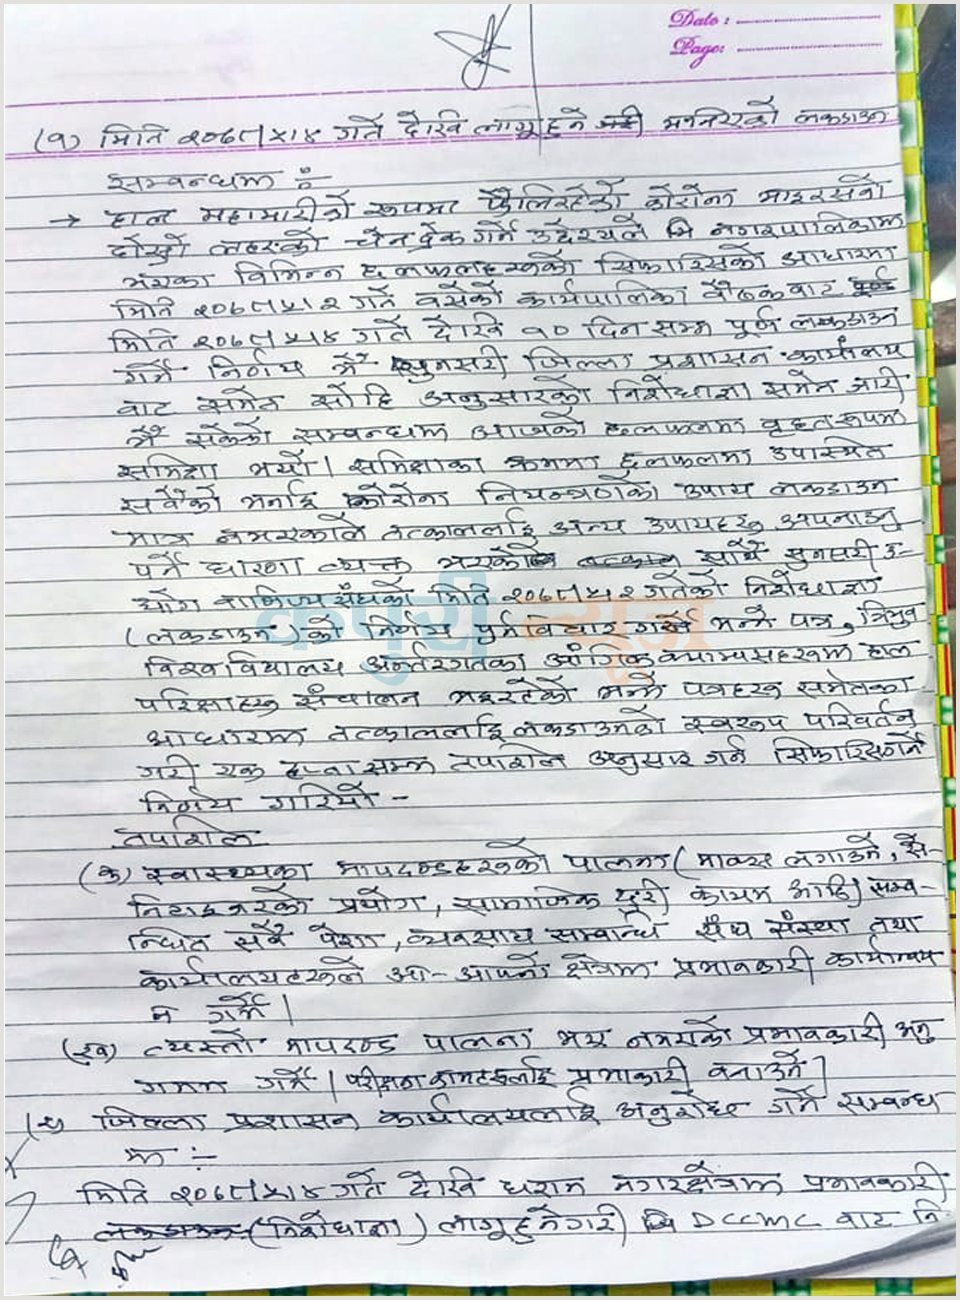 Date :
Page:
(१) मिति २०७८।५।४ गते देखि लागू हुने गरी भनिएको लकडाउन
सम्बन्धमा :-
→ हाल महामारीको रूपमा फैलिरहेको कोरोना भाइरसको
दोस्रो लहरको चेन ब्रेक गर्ने उद्देश्यले यि नगरपालिकामा
भएका विभिन्न छलफलहरूको सिफारिसको आधारमा
मिति २०७८।५।२ गते बसेको कार्यपालिका बैठकबाट
मिति २०७८।५।४ गते देखि १० दिन सम्म पूर्ण लकडाउन
गर्ने निर्णय भै सुनसरी जिल्ला प्रशासन कार्यालय
बाट समेत सोहि अनुसारको निशेधाज्ञा समेत जारी
भै सकेको सम्बन्धमा आजको छलफलमा वृहत रूपमा
समिक्षा भयो। समिक्षाका क्रममा छलफलमा उपास्थित
सबैको भनाई कोरोना नियन्त्रणको उपाय लकडाउन
मात्र नभएकाले तत्काललाई अन्य उपायहरू अपनाउनु
पर्ने धारणा व्यक्त भएको साथै सुनसरी उ-
द्योग वाणिज्य संघको मिति २०७८।५।२ गतेको निशेधाज्ञा
(लकडाउन) को निर्णय पुर्नविचार गर्ने भन्ने पत्र, त्रिभुव
विश्वविद्यालय अर्न्तरगतका आंगिक क्याम्पसहरूमा हाल
परिक्षाहरू संचालन भइरहेको भन्ने पत्रहरू समेतका
आधारमा तत्काललाई लकडाउनको स्वरूप परिवर्तन
गरी एक हप्ता सम्म तपाशिल अनुसार गर्न सिफारिसगर्ने
निर्णय गरियो -
तपाशिल
(क) स्वास्थ्यका मापदण्डहरूको पालना (मास्क लगाउने, से-
निटाइजरको प्रयोग, सामाजिक दुरी कायम आदि) सम्व-
न्धित सबै पेशा, व्यवसाय सम्बन्धि संघ संस्था तथा
कार्यालयहरूले आ-आफ्नो क्षेत्रमा प्रभावकारी कार्यान्वय
न गर्ने।
(ख) त्यस्तो मापदण्ड पालना भए नभएको प्रभावकारी अनु
गमन गर्ने [परीक्षण प्रभाकारी बनाउने]
जिल्ला प्रशासन कार्यालयलाई अनुरोध गर्ने सम्बन्ध
मा :-
मिति २०७८।५।४ गते देखि धरान नगरक्षेत्रमा प्रभावकारी
लकडाउन (निशेधाज्ञा) लागू हुनेगरी यि DCCMC बाट नि-